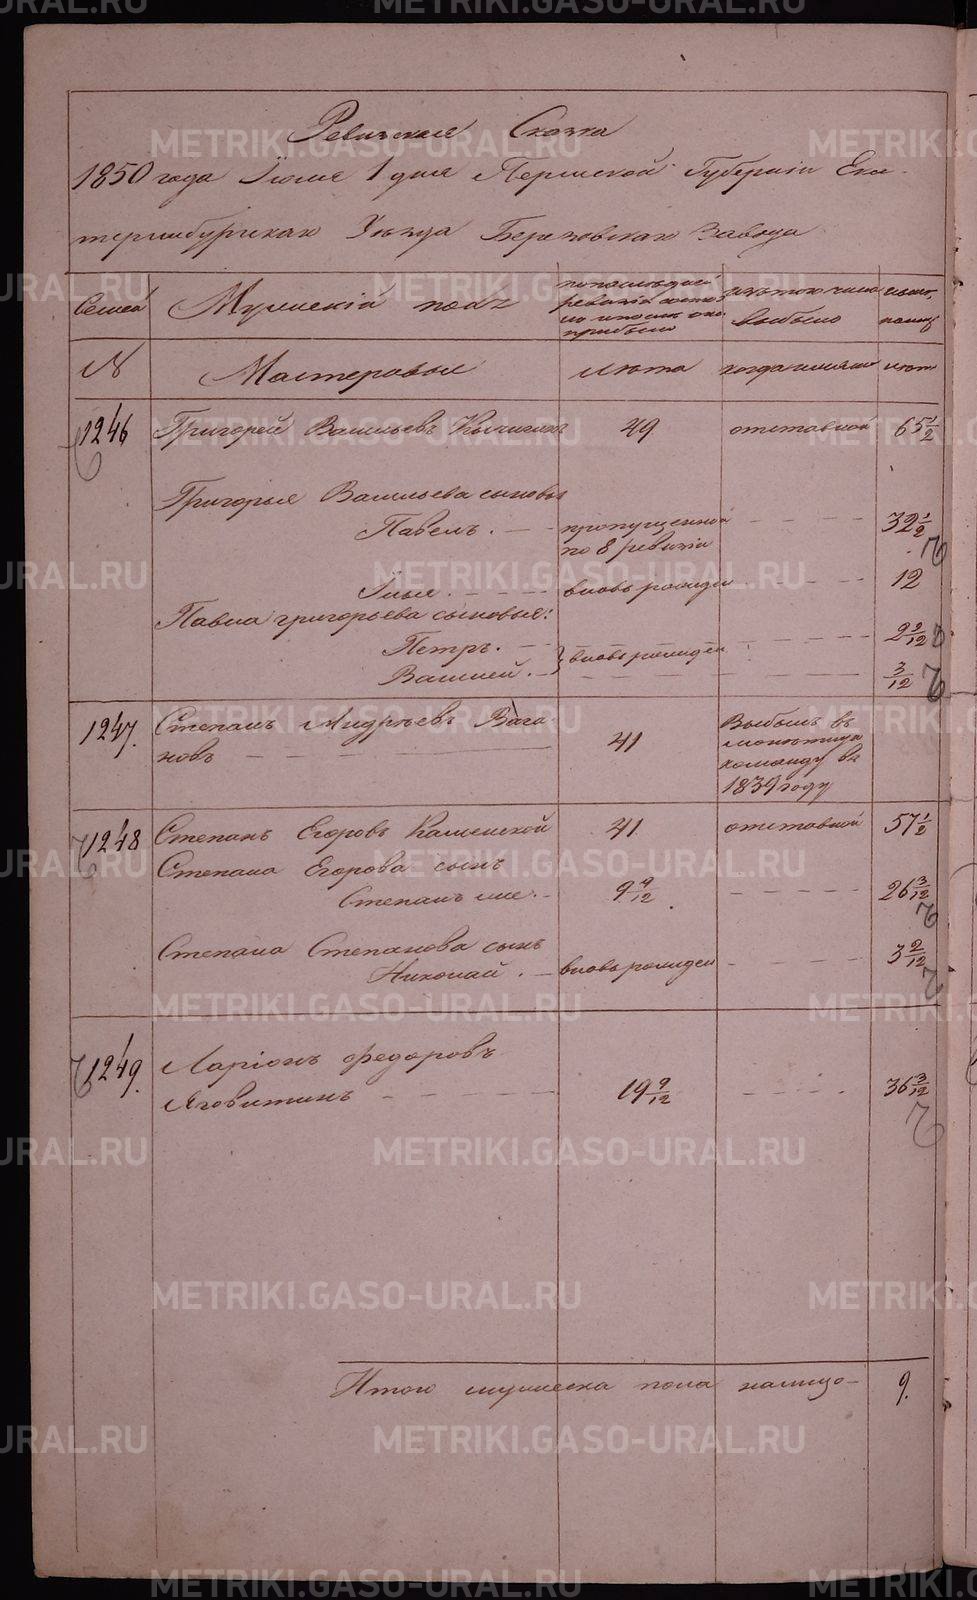 Ревизская Сказка
1850 года Іюля 1 дня Пермской Губерніи Ека-
теринбургскаго Уѣзда Березовскаго Завода
Семей Мужескій полъ по послѣдней ревизіи состо- ло и послѣ оной прибыло изъ того числа выбыло нынѣ на лицо
№ Мастеровые лѣта когда имянно лѣта
1246 Григорей Васильевъ 49 отставной 65 1/2
Григорья Васильева сыновья
Павелъ. пропущенной по 8 ревизіи 32 1/2
Илья вновь рожден 12
Павла григорьева сыновья:
Петръ. } вновь рожден 2 2/12
Василей. 3/12
1247. Степанъ Андреевъ Вага-
новъ 41 Выбылъ въ команду въ 1839 году
1248 Степанъ Егоровъ Каменской 41 отставной 57 1/2
Степана Егорова сынъ
Степанъ же. 9 9/12 26 3/12
Степана Степанова сынъ
Николай. вновь рожден 3 2/12
1249. Ларіонъ Федоровъ
Яговитинъ 19 9/12 36 3/12
Итого мужеска пола налицо 9.
METRIKI.GASO-URAL.RU